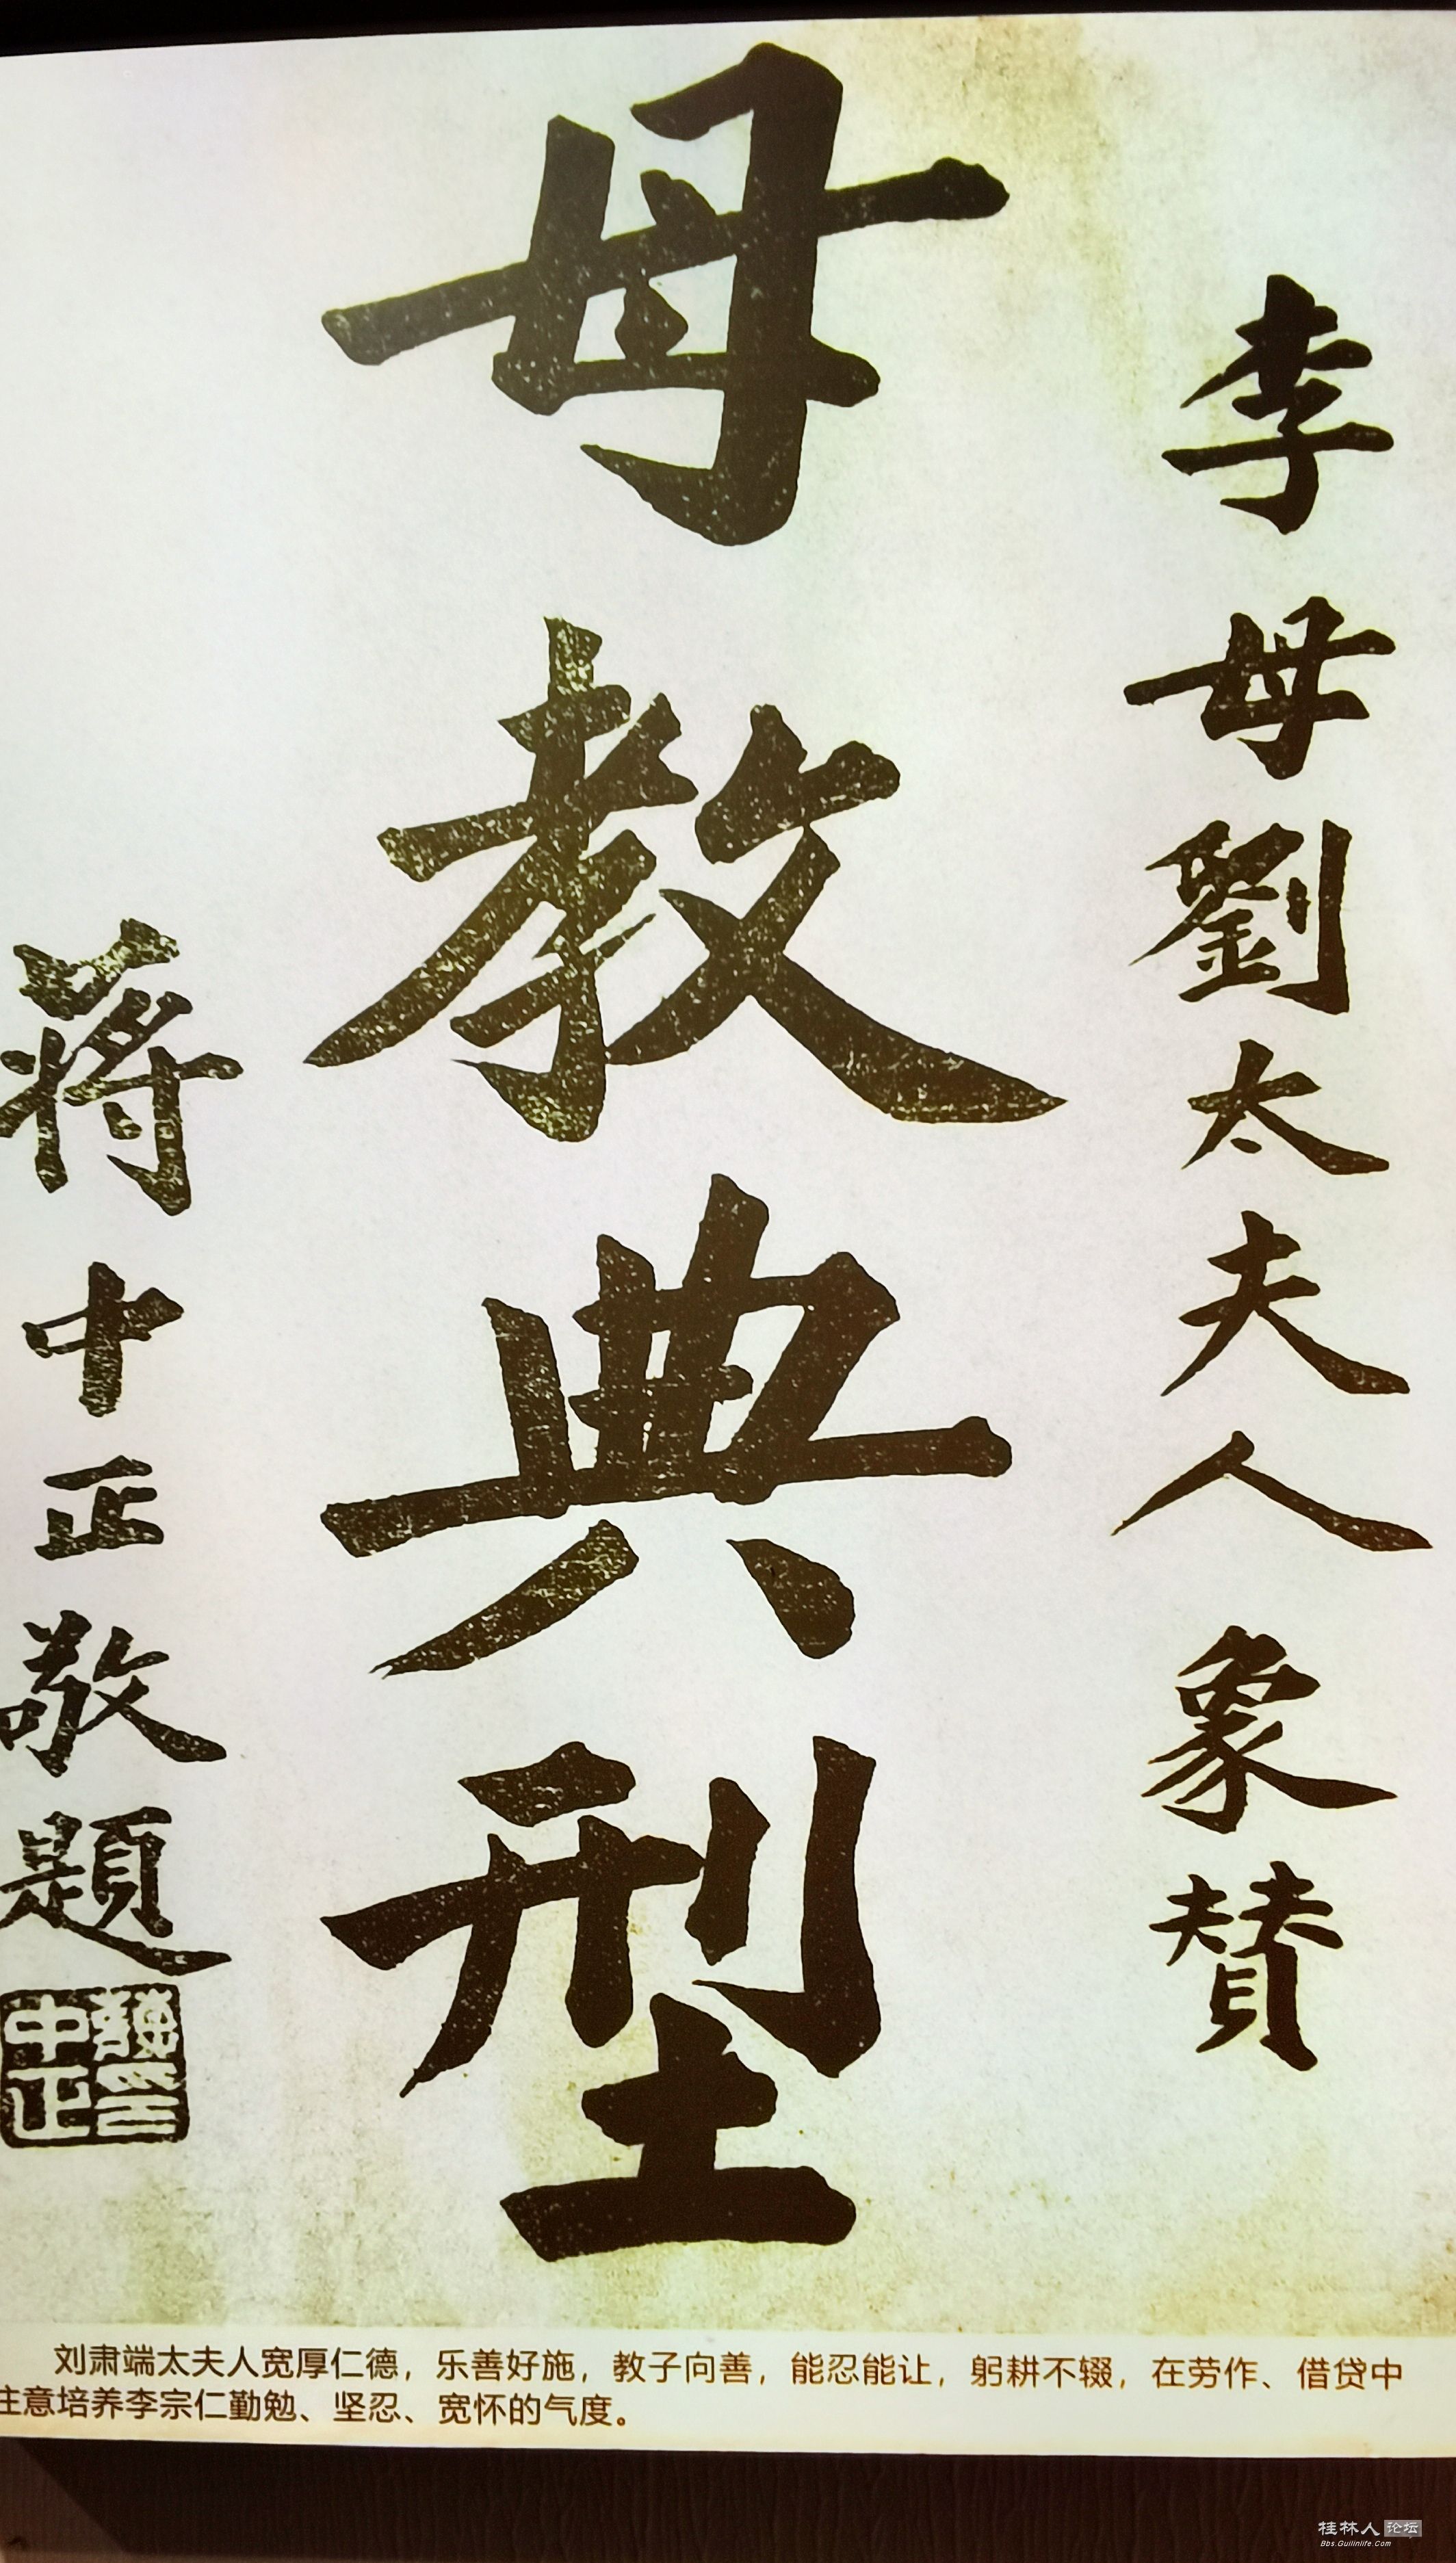 李母劉太夫人象贊
母教典型
蔣中正敬題
蔣中正印
刘肃端太夫人宽厚仁德，乐善好施，教子向善，能忍能让，躬耕不辍，在劳作、借贷中
注意培养李宗仁勤勉、坚忍、宽怀的气度。
桂林人论坛
Bbs.Guilinlife.Com